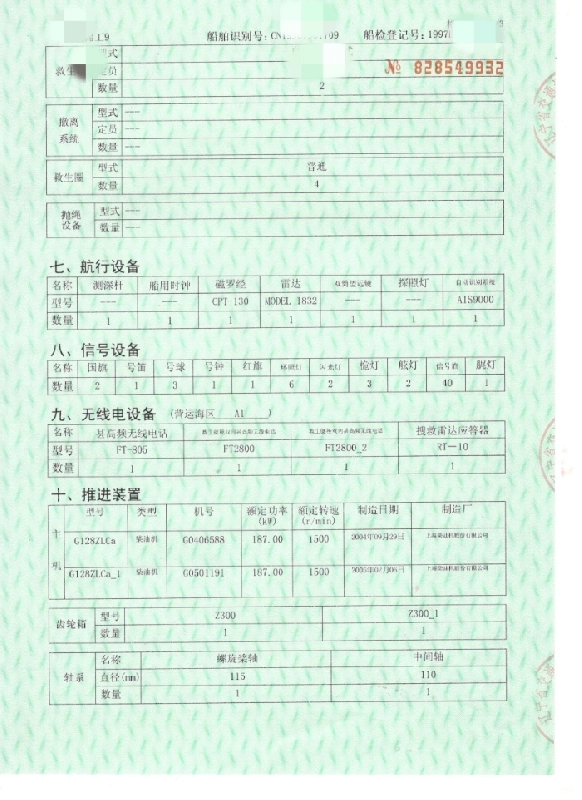 工9 船舶识别号: CN 船检登记号: 1997
№ 828549932
救生 型式
定员
数量 2
撤离系统 型式 ---
定员 ---
数量 ---
救生圈 型式 普通
数量 4
抛绳设备 型式 ---
数量 ---
七、航行设备
名称 测深杆 船用时钟 磁罗经 雷达 探照灯 自动识别系统
型号 --- --- CPT-130 MODEL 1832 --- --- AIS9000
数量 1 1 1 1 1 1 1
八、信号设备
名称 国旗 号笛 号球 号钟 红旗 环照灯 闪光灯 桅灯 舷灯 艉灯
数量 2 1 3 1 1 6 2 3 2 40 1
九、无线电设备 (营运海区 A1 )
名称 甚高频无线电话 搜救雷达应答器
型号 FT-805 FT2800 FT2800_2 RT-10
数量 1 1 1 1
十、推进装置
主机 型号 类型 机号 额定功率(kW) 额定转速(r/min) 制造日期 制造厂
G128ZLCa 柴油机 G0406588 187.00 1500 2004年09月29日
G128ZLCa_1 柴油机 G0501191 187.00 1500
齿轮箱 型号 Z300 Z300_1
数量 1 1
轴系 名称 螺旋桨轴 中间轴
直径(mm) 115 110
数量 1 1